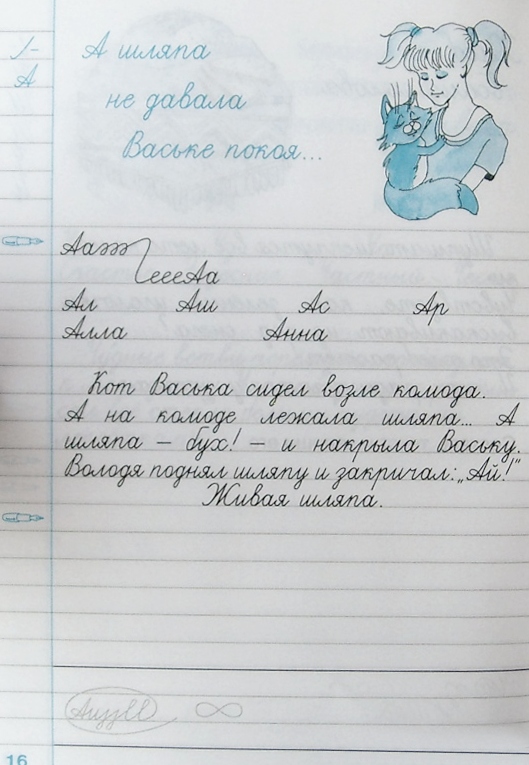 А шляпа
не давала
Ваське покоя...
А
АаЭЭЭ
еееАа
Ал Аш Ас Ар
Алла Анна
Кот Васька сидел возле комода.
А на комоде лежала шляпа... А
шляпа – бух! – и накрыла Ваську.
Володя поднял шляпу и закричал: „Ай!"
Живая шляпа.
16